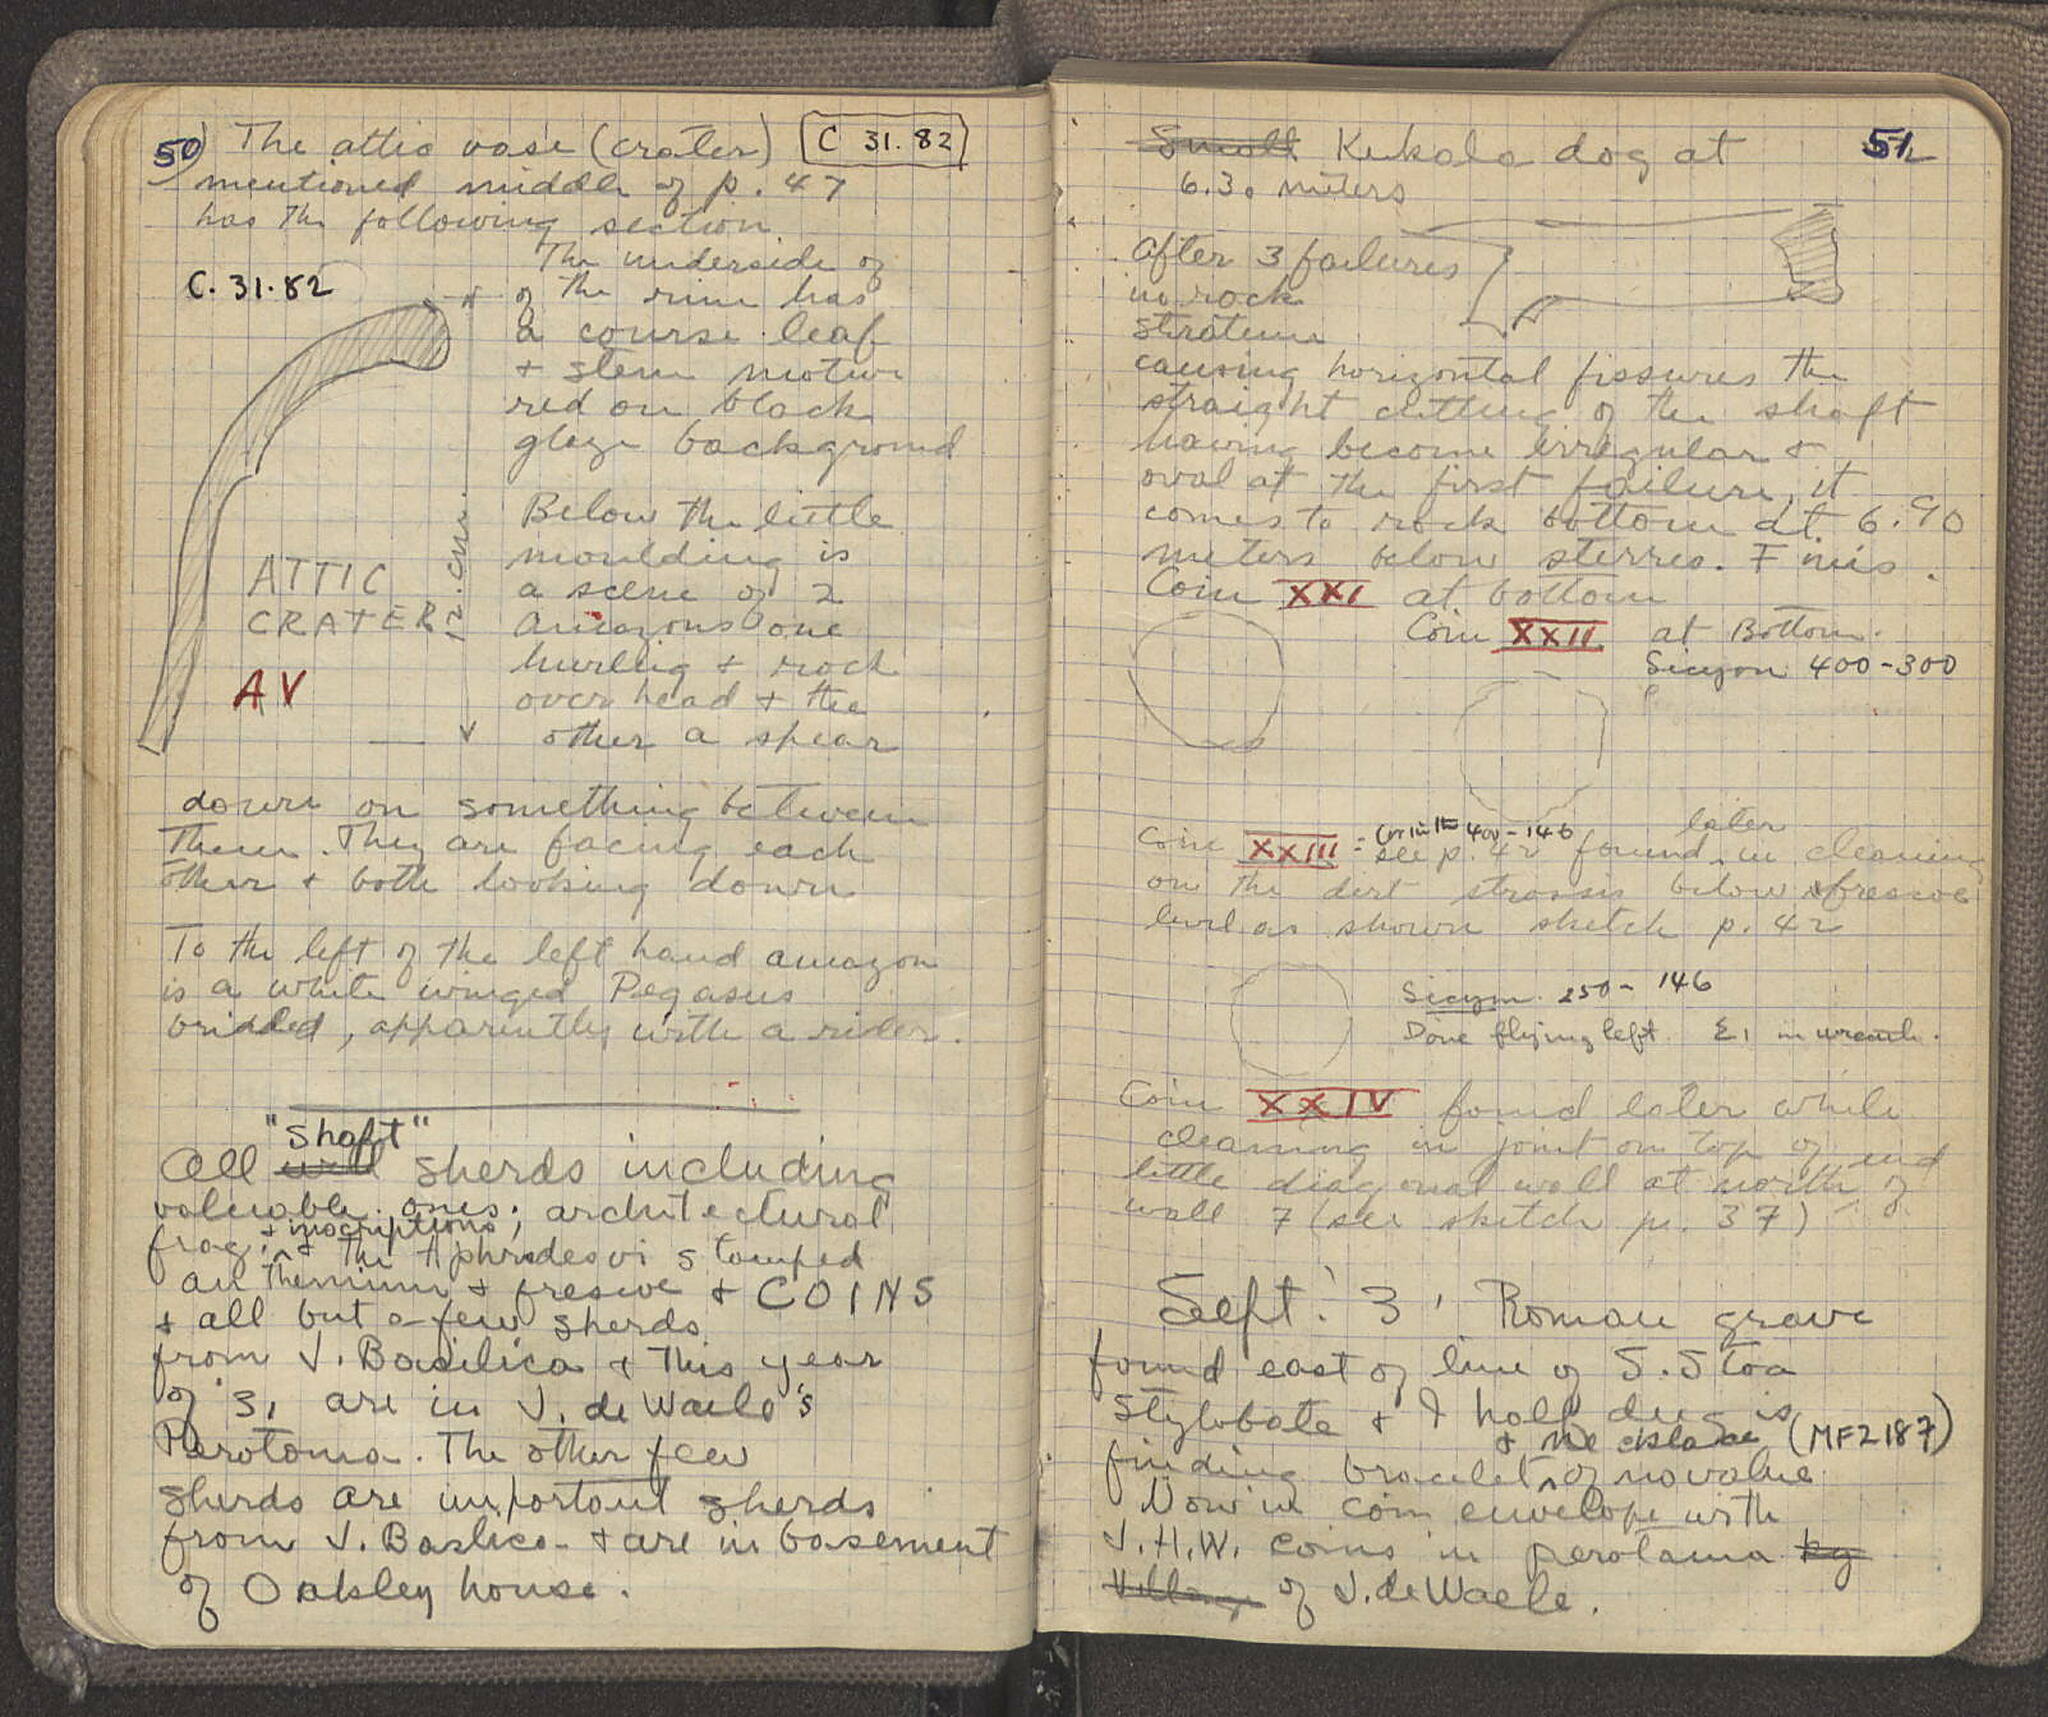 50) The attic vase (crater) C 31.82
mentioned middle of p. 47
has the following section
The underside of
C. 31.82
of the rim has
a course leaf
+ stem motive
red on black
glaze background
Below the little
moulding is
a scene of 2
amazons one
hurling + rock
over head + the
other a spear
12. cm.
ATTIC
CRATER
AV
down on something between
them. They are facing each
other + both looking down
To the left of the left hand amazon
is a white winged Pegasus
bridled, apparently with a rider.
"shaft"
All well sherds including
valuable ones; architectural
+ inscriptions;
frag; + the Aphrodesvi stamped
anthemium + fresco + COINS
+ all but a few sherds
from J. Basilica + this year
of 31 are in J. de Waele's
Parotoma. The other few
sherds are important sherds
from J. Baslica - + are in basement
of Oakley house.
Small Kukala dog at 51
6.30 meters
After 3 failures
in rock
stratum
causing horizontal fissures the
straight cutting of the shaft
having become irregular +
oval at the first failure, it
comes to rock bottom at 6.90
meters below sterres. Finis.
Coin XXI at bottom
Coin XXII at Bottom.
Sicyon 400-300
later
Coin XXIII = Corinth 400-146
see p. 42 found in cleaning
on the dirt strosis below fresco
level as shown sketch p. 42
Sicyon. 250-146
Dove flying left. ΣI in wreath.
Coin XXIV found later while
cleaning in joint on top of end
little diagonal wall at north of
wall 7 (see sketch p. 37)
Sept. 3, Roman grave
found east of line of S. Stoa
Stylobate + I half dug is
+ necklace (MF2187)
finding bracelet of no value
Now in coin envelope with
J.H.W. coins in perotama
of J. de Waele.